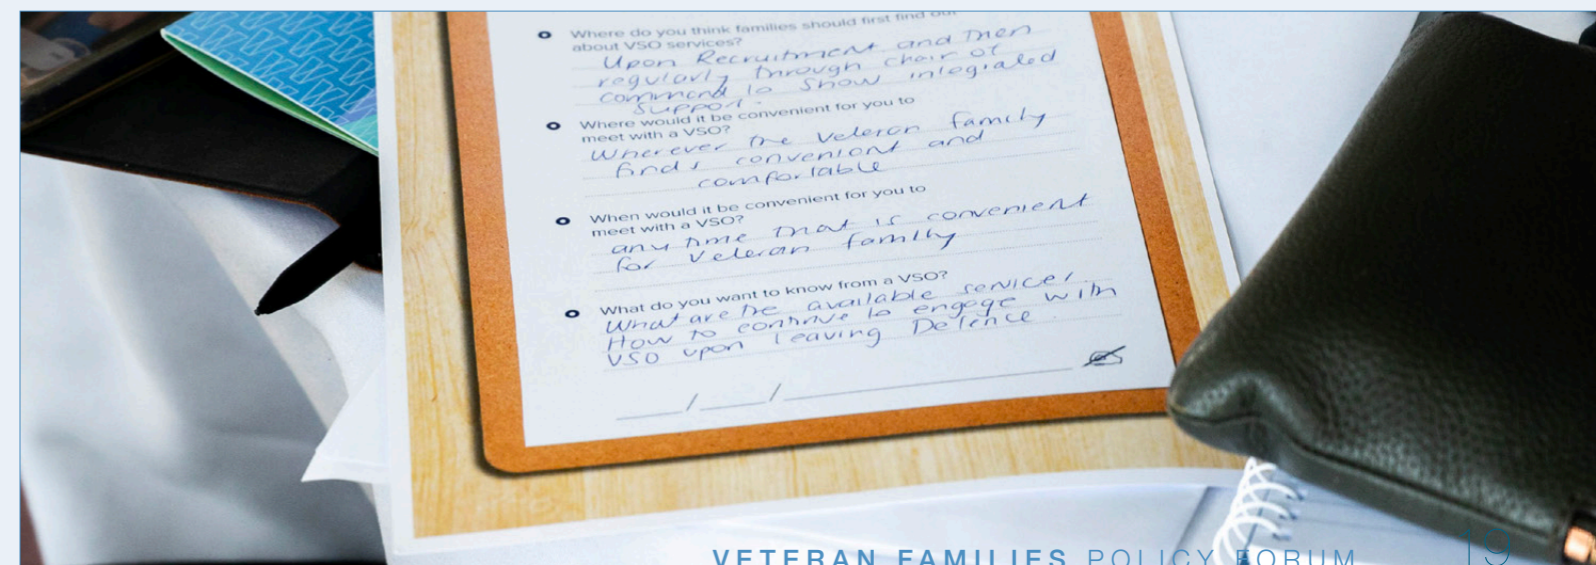 Where do you think families should first find out
about VSO services?
Upon Recruitment and then
regularly through chain of
command to show integrated
support.
Where would it be convenient for you to
meet with a VSO?
Wherever the veteran family
finds convenient and
comfortable
When would it be convenient for you to
meet with a VSO?
any time that is convenient
for veteran family
What do you want to know from a VSO?
What are the available services
How to continue to engage with
VSO upon leaving Defence.
__/__/__
VETERAN FAMILIES POLICY FORUM 19